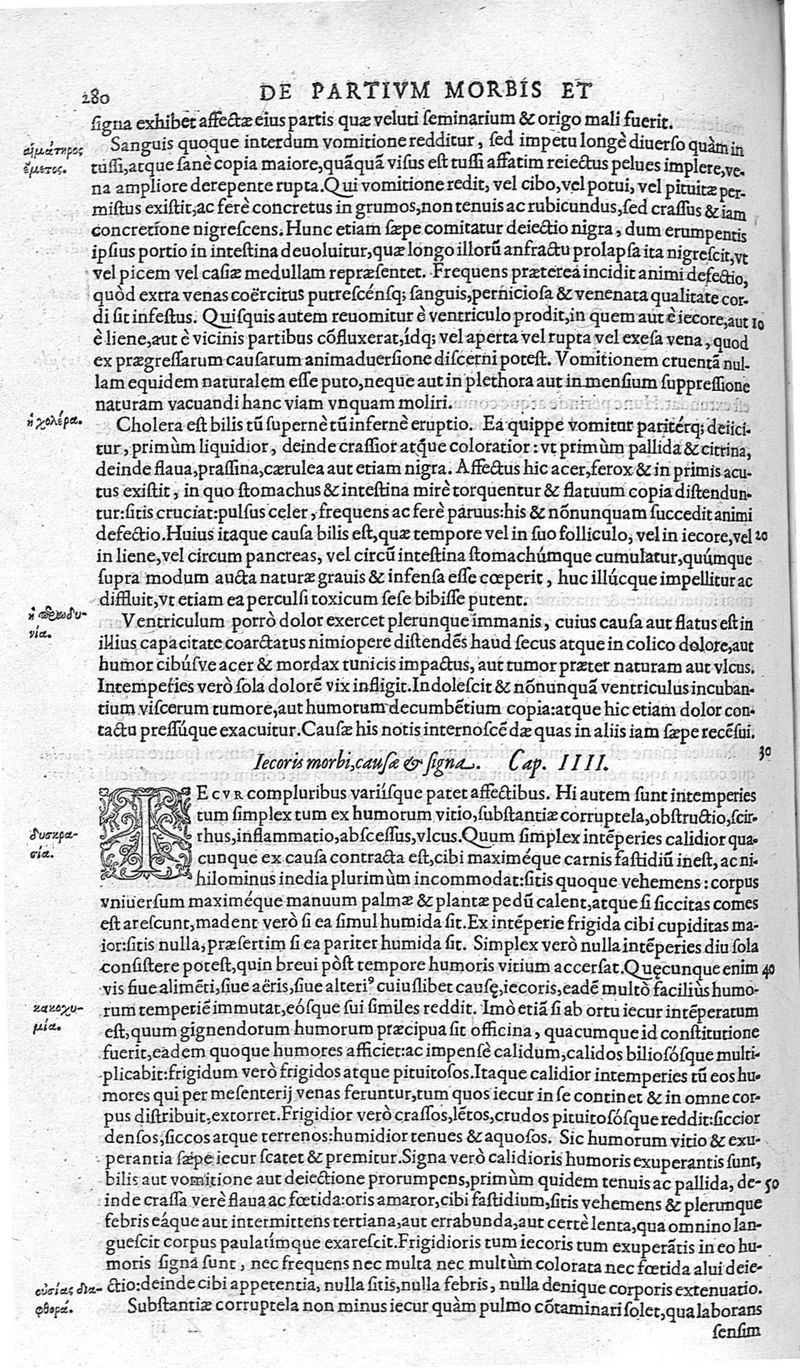 280 DE PARTIVM MORBIS ET
ſigna exhibet affectæ eius partis quæ veluti ſeminarium & origo mali fuerit.
αἱμάτηρος
ἔμετος.
Sanguis quoque interdum vomitione redditur, ſed impetu longè diuerſo quàm in
tuſſi, atque ſanè copia maiore, quãquã viſus eſt tuſſi affatim reiectus pelues implere, ve-
na ampliore derepente rupta. Qui vomitione redit, vel cibo, vel potui, vel pituitæ per-
miſtus exiſtit, ac ferè concretus in grumos, non tenuis ac rubicundus, ſed craſſus & iam
concretione nigreſcens. Hunc etiam ſæpe comitatur deiectio nigra, dum erumpentis
ipſius portio in inteſtina deuoluitur, quæ longo illorũ anfractu prolapſa ita nigreſcit, vt
vel picem vel caſiæ medullam repræſentet. Frequens prætereá incidit animi defectio,
quòd extra venas coërcitus putreſcénſq; ſanguis, pernicioſa & venenata qualitate cor-
di ſit infeſtus. Quiſquis autem reuomitur è ventriculo prodit, in quem aut è iecore, aut 10
è liene, aut è vicinis partibus cõfluxerat, ídq; vel aperta vel rupta vel exeſa vena, quod
ex prægreſſarum cauſarum animaduerſione diſcerni poteſt. Vomitionem cruentã nul-
lam equidem naturalem eſſe puto, neque aut in plethora aut in menſium ſuppreſſione
naturam vacuandi hanc viam vnquam moliri.
ἡ χολέρα.
Cholera eſt bilis tũ ſupernè tũ infernè eruptio. Ea quippe vomitur paritérq; deiici-
tur, primùm liquidior, deinde craſſior atq́ue coloratior: vt primùm pallida & citrina,
deinde flaua, praſſina, cærulea aut etiam nigra. Affectus hic acer, ferox & in primis acu-
tus exiſtit, in quo ſtomachus & inteſtina mirè torquentur & flatuum copia diſtendun-
tur: ſitis cruciat: pulſus celer, frequens ac ferè paruus: his & nõnunquam ſuccedit animi
defectio. Huius itaque cauſa bilis eſt, quæ tempore vel in ſuo folliculo, vel in iecore, vel 20
in liene, vel circum pancreas, vel circũ inteſtina ſtomachúmque cumulatur, quúmque
ſupra modum aucta naturæ grauis & infenſa eſſe cœperit, huc illúcque impellitur ac
diffluit, vt etiam ea perculſi toxicum ſeſe bibiſſe putent.
Ventriculum porrò dolor exercet plerunque immanis, cuius cauſa aut flatus eſt in
illius capacitate coarctatus nimiopere diſtendẽs haud ſecus atque in colico dolore, aut
humor cibúſve acer & mordax tunicis impactus, aut tumor præter naturam aut vlcus.
Intemperies verò ſola dolorẽ vix infligit. Indoleſcit & nõnunquã ventriculus incuban-
tium viſcerum tumore, aut humorum decumbẽtium copia: atque hic etiam dolor con-
tactu preſſúque exacuitur. Cauſæ his notis internoſcẽdæ quas in aliis iam ſæpe recẽſui.
30
Iecoris morbi, cauſæ & ſigna. Cap. IIII.
IECVR compluribus variíſque patet affectibus. Hi autem ſunt intemperies
tum ſimplex tum ex humorum vitio, ſubſtantiæ corruptela, obſtructio, ſcir-
δυσκρα-
σία.
rhus, inflammatio, abſceſſus, vlcus. Quum ſimplex intẽperies calidior qua-
cunque ex cauſa contracta eſt, cibi maximéque carnis faſtidiũ ineſt, ac ni-
hilominus inedia plurimùm incommodat: ſitis quoque vehemens: corpus
vniuerſum maximéque manuum palmæ & plantæ pedũ calent, atque ſi ſiccitas comes
eſt areſcunt, madent verò ſi ea ſimul humida ſit. Ex intẽperie frigida cibi cupiditas ma-
ior: ſitis nulla, præſertim ſi ea pariter humida ſit. Simplex verò nulla intẽperies diu ſola
conſiſtere poteſt, quin breui pòſt tempore humoris vitium accerſat. Quęcunque enim 40
vis ſiue alimẽti, ſiue aëris, ſiue alteriꝰ cuiuſlibet cauſę, iecoris, eadẽ multò faciliùs humo-
κακοχυ-
μία.
rum temperiẽ immutat, eóſque ſui ſimiles reddit. Imò etiã ſi ab ortu iecur intẽperatum
eſt, quum gignendorum humorum præcipua ſit officina, quacumque id conſtitutione
fuerit, eadem quoque humores afficiet: ac impenſè calidum, calidos bilioſóſque multi-
plicabit: frigidum verò frigidos atque pituitoſos. Itaque calidior intemperies tũ eos hu-
mores qui per meſenterij venas feruntur, tum quos iecur in ſe continet & in omne cor-
pus diſtribuit, extorret. Frigidior verò craſſos, lẽtos, crudos pituitoſóſque reddit: ſiccior
denſos, ſiccos atque terrenos: humidior tenues & aquoſos. Sic humorum vitio & exu-
perantia ſæpe iecur ſcatet & premitur. Signa verò calidioris humoris exuperantis ſunt,
bilis aut vomitione aut deiectione prorumpens, primùm quidem tenuis ac pallida, de- 50
inde craſſa verè flaua ac fœtida: oris amaror, cibi faſtidium, ſitis vehemens & plerunque
febris eáque aut intermittens tertiana, aut errabunda, aut certè lenta, qua omnino lan-
gueſcit corpus paulatímque exareſcit. Frigidioris tum iecoris tum exuperãtis in eo hu-
moris ſigna ſunt, nec frequens nec multa nec multùm colorata nec fœtida alui deie-
ctio: deinde cibi appetentia, nulla ſitis, nulla febris, nulla denique corporis extenuatio.
οὐσίας δια-
φθορά.
Subſtantiæ corruptela non minus iecur quàm pulmo cõtaminari ſolet, qua laborans
ſenſim